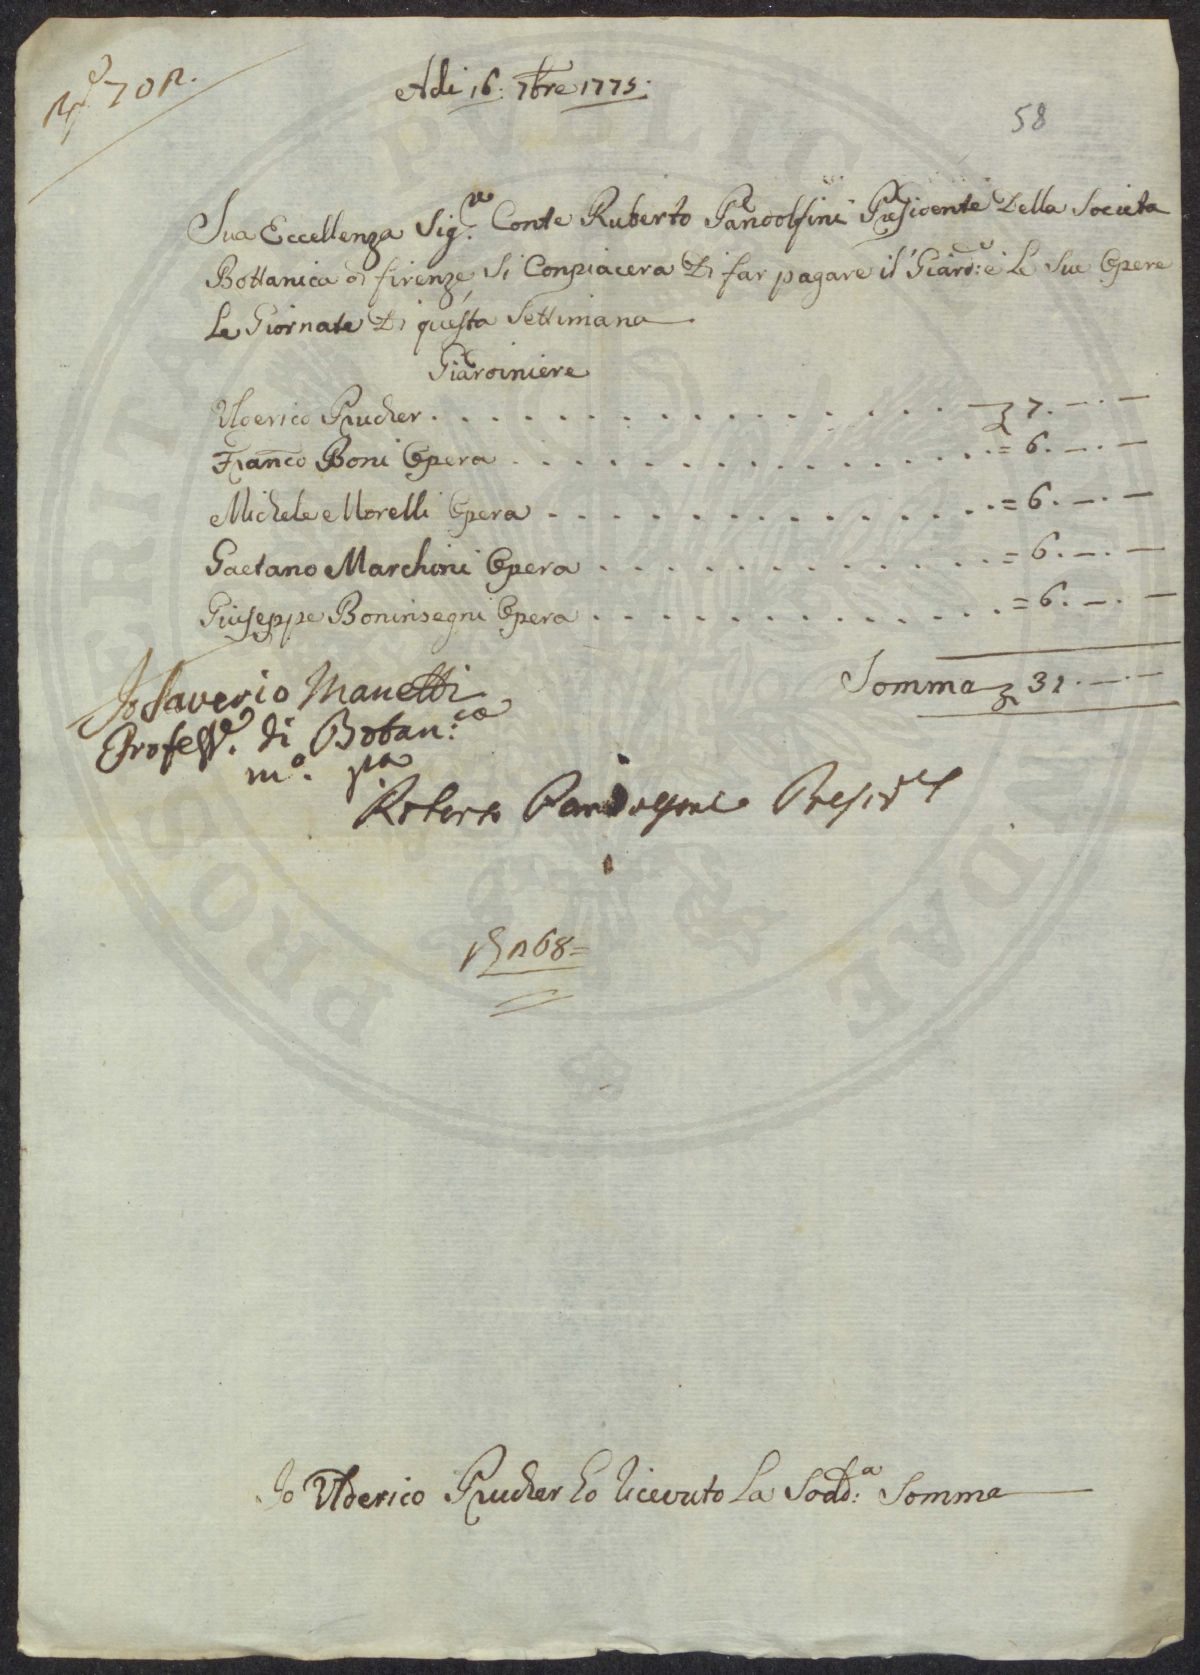 Adi 16: 7bre 1775:
58
Sua Eccellenza Sig.re Conte Ruberto Pandolfini Presidente Della Societa
Bottanica di firenze, Si Conpiacera Di far pagare il Giard:e e Le Sue Opere
Le Giornate Di questa Settimana
Giardiniere
Ulderico Prucher . . . . . . . . . . . . . . . 7. —. —
Franco Boni Opera . . . . . . . . . . . . . = 6. —. —
Michele Morelli Opera . . . . . . . . . . . . = 6. —. —
Gaetano Marchini Opera . . . . . . . . . . . = 6. —. —
Giuseppe Boninsegni Opera . . . . . . . . . . . = 6. —. —
Somma 31. —. —
Io Saverio Manetti
Profess.e di Botan:ca
m.o pa
Roberto Pandolfini Presid.e
n 68=
Io Ulderico Prucher ho ricevuto La Sodd:a Somma
PROSPERITATI PVBLICAE